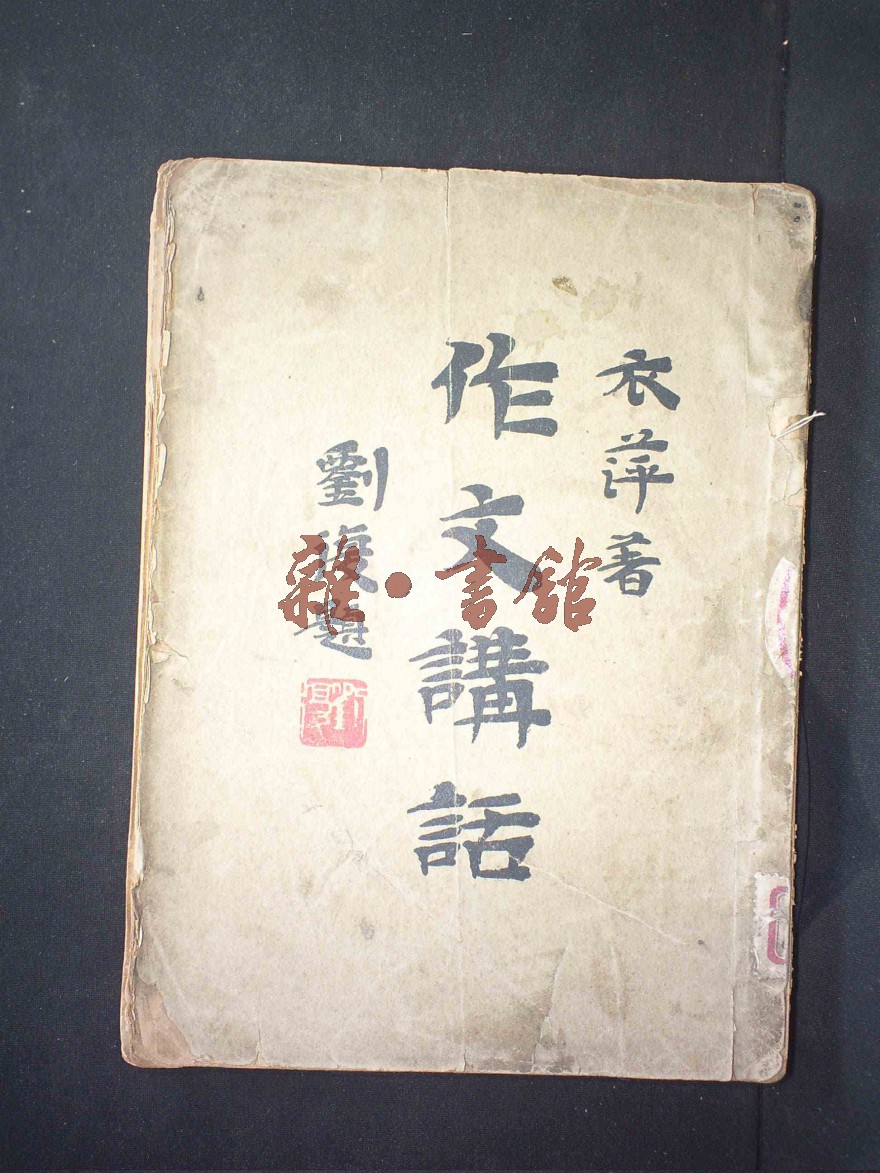 衣萍著
作文講話
劉復題
雜·書館